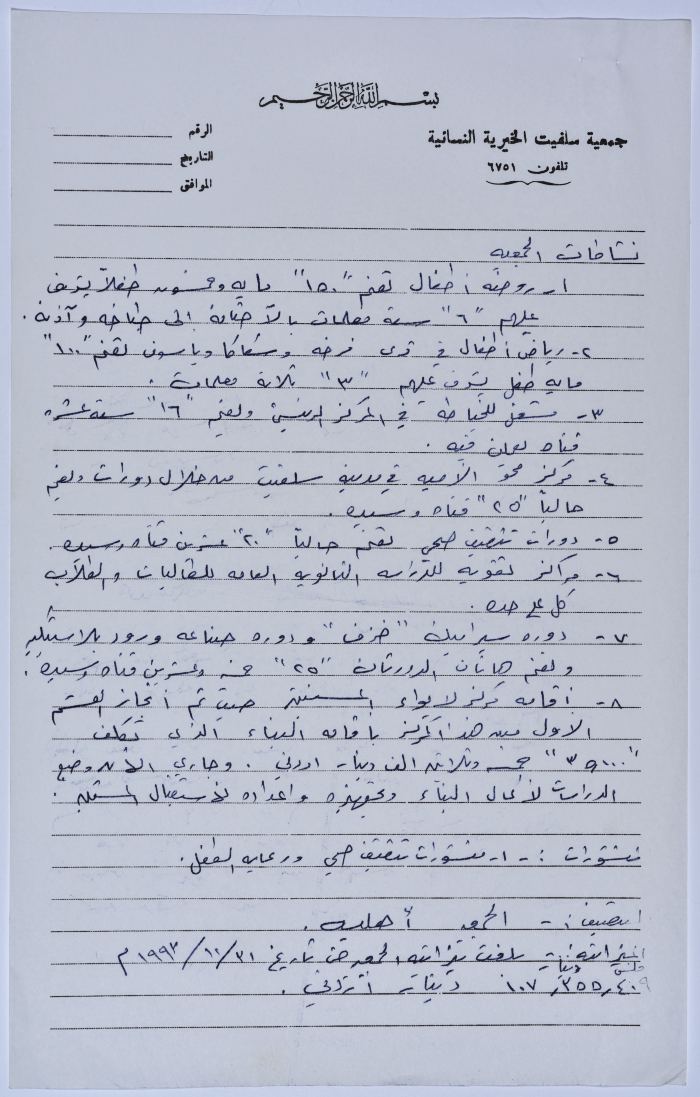 بسم الله الرحمن الرحيم
جمعية سلفيت الخيرية النسائية
تلفون ٦٧٥١
الرقم
التاريخ
الموافق
نشاطات الجمعيه
١- روضة أطفال تضم "١٥٠" مايه وخمسون طفلاً يشرف
عليهم "٦" ستة معلمات بالاضافة الى طباخه وآذنة .
٢- رياض أطفال في قرى فرخه وسكاكا وياسوف تضم "١٠٠"
مايه طفل يشرف عليهم "٣" ثلاثة معلمات .
٣- مشغل للخياطه في المركز الرئيسي ويضم "١٦" ستة عشره
فتاه يعملن فيه .
٤- مركز محو الأميه في مدينة سلفيت من خلال دورات ويضم
حالياً "٢٥" فتاه وسيده .
٥- دورات تثقيف صحي تضم حالياً "٢٠" عشرين فتاه وسيده .
٦- مراكز تقويه للدراسه الثانويه العامه للطالبات والطلاب
كل على حده .
٧- دوره سيراميك "خزف" ودوره صناعه ورود بلاستيكيه
وتضم هاتان الدورتان "٢٥" خمسه وعشرين فتاه وسيده .
٨- أقامه مركز لايواء المسنين حيث تم أنجاز القسم
الاول من هذا المركز باقامه البناء الذي تكلف
"٣٥٠٠٠" خمسه وثلاثين الف دينار اردني . وجاري الآن وضع
الدراسات لأكمال البناء وتجهيزه واعداده لأستقبال المسنين .
منشورات :- ١- منشورات تثقيف صحي ورعايه الطفل .
التصنيف :- الجمعيه أهليه .
الميزانيه :- بلغت ميزانيه الجمعيه حتى تاريخ ٣١/١٢/١٩٩٣ م
فلس دينار
١٠٧,٣٥٥,٤٠٩ دينار أردني .